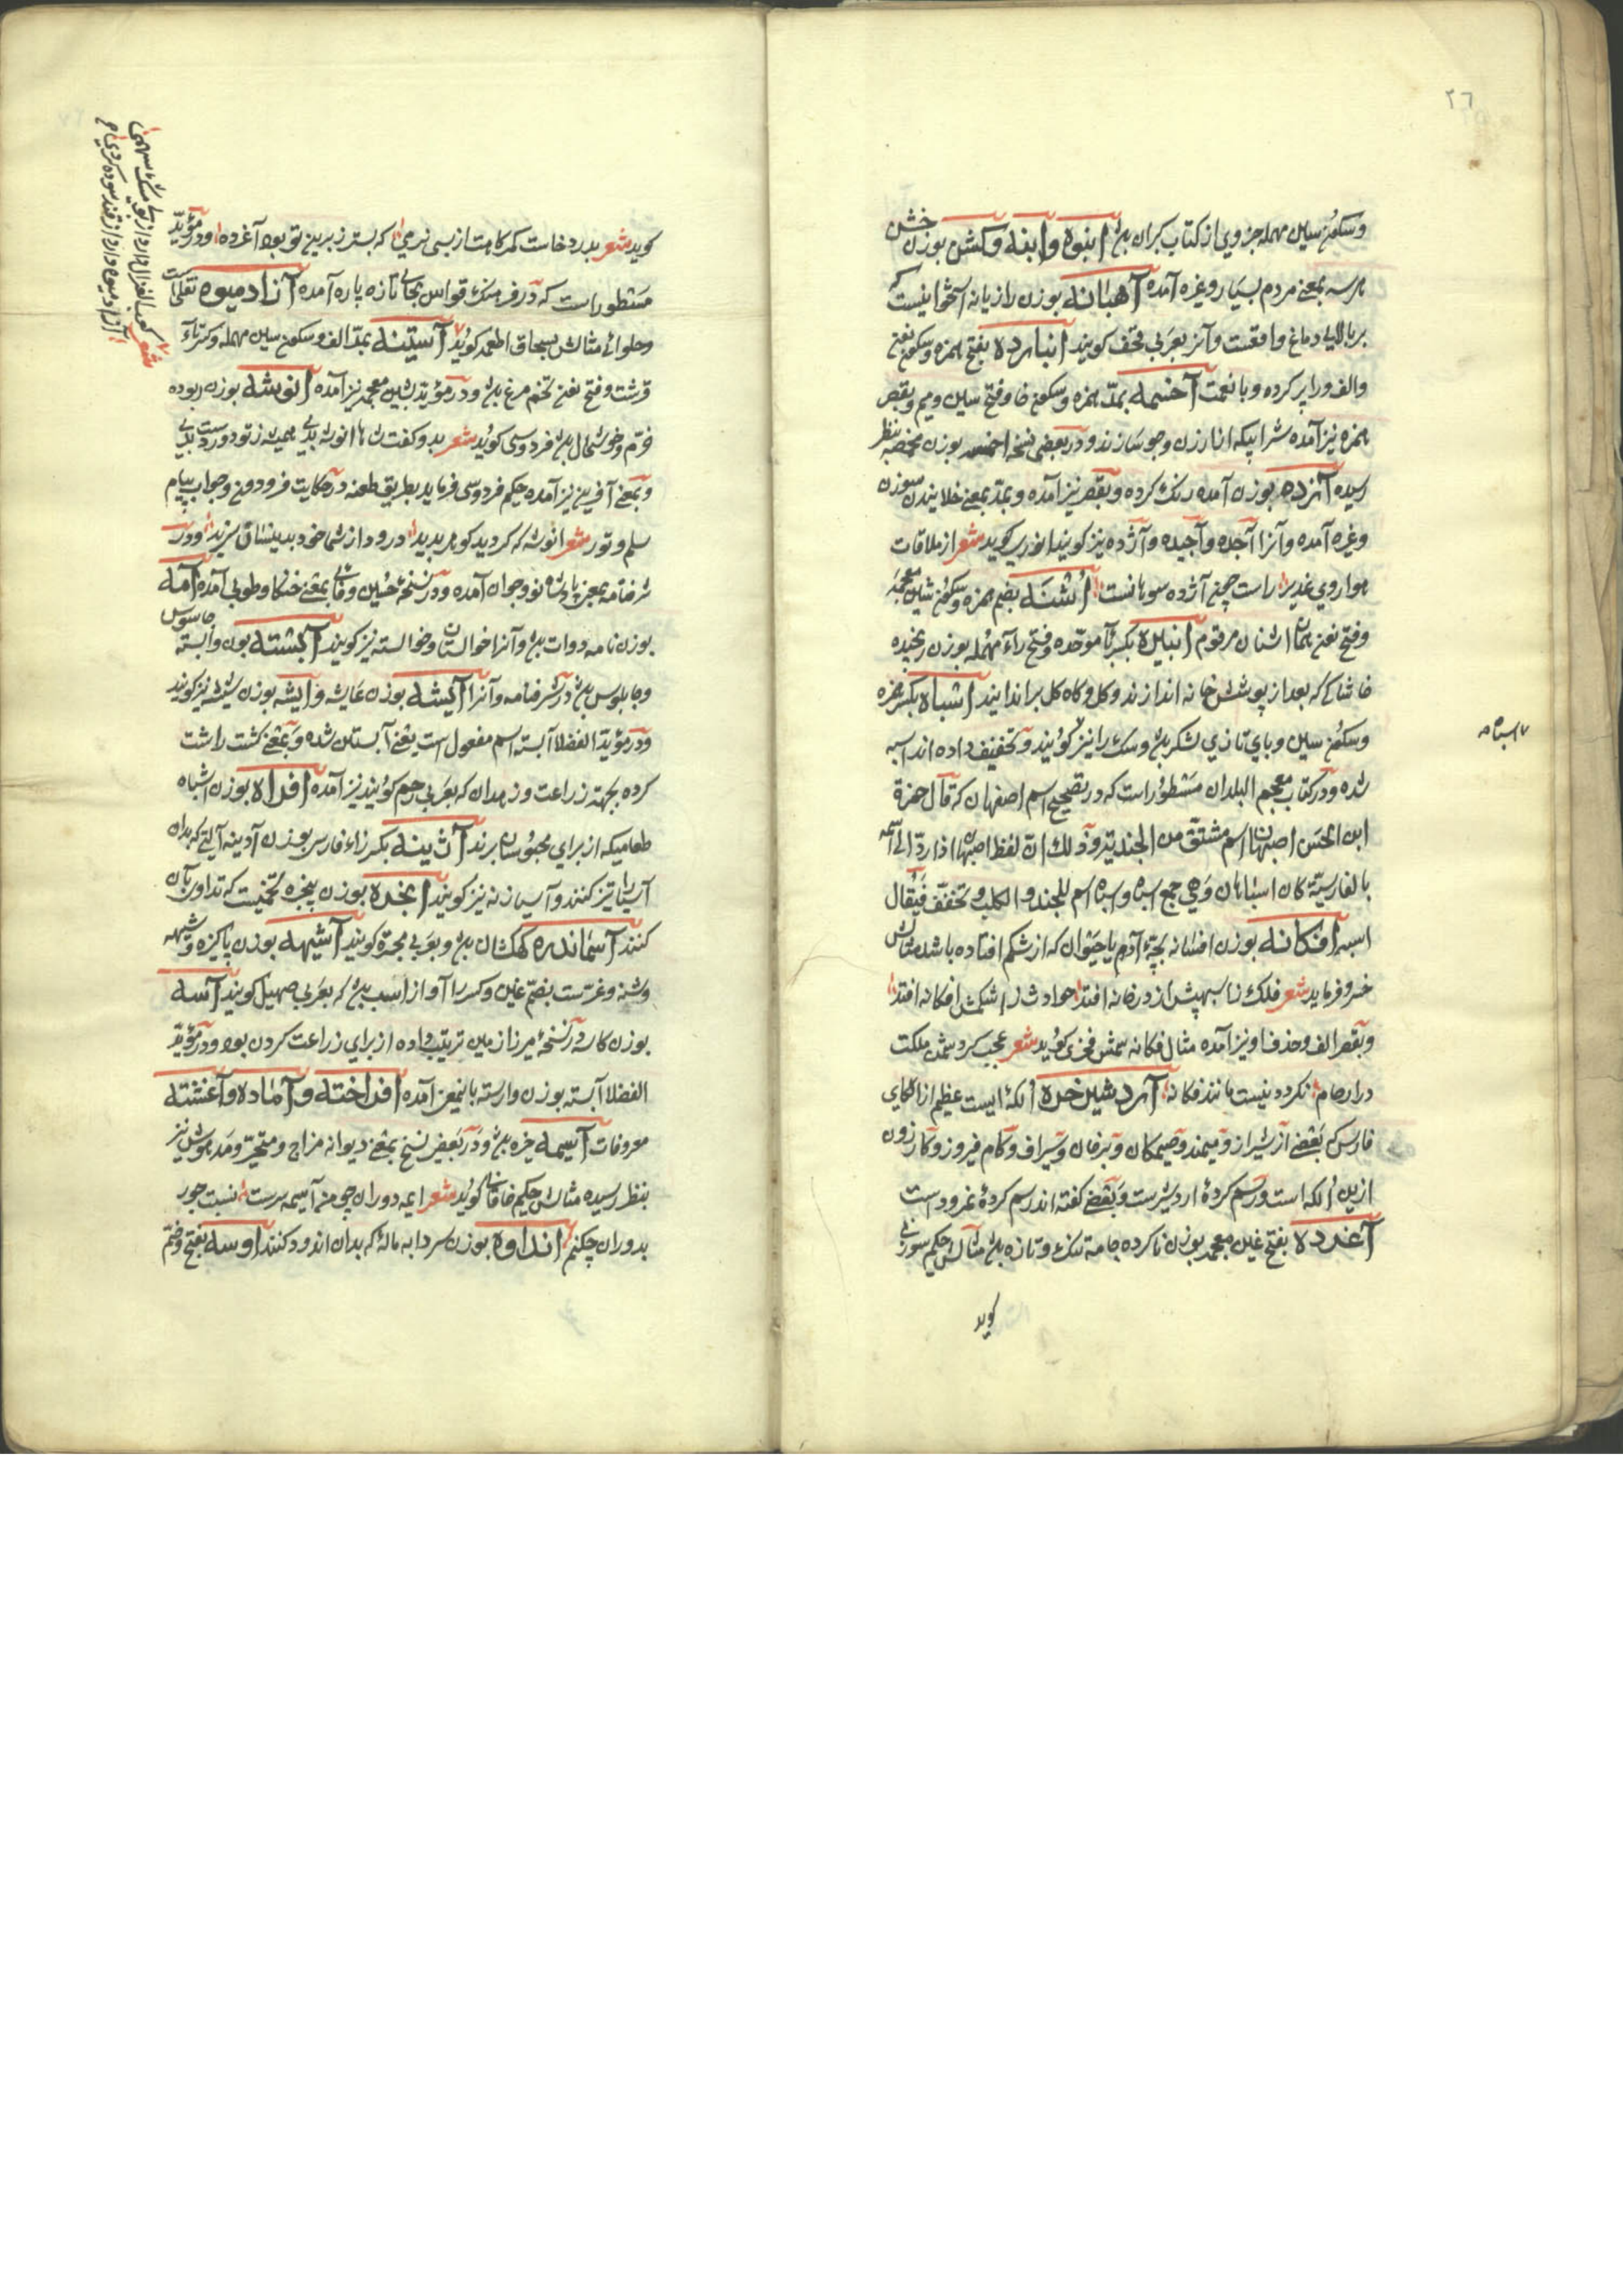 ٢٦
وسکون سین مهمله جزوی از کتاب کران باشد انبوه وابنه وکشن بوزن خشن
هرسه بمعنی مردم بسیار وغیره آمده آهیانه بوزن رازیانه استخوانیست که
بر بالای دماغ واقعست وآنرا بعربی قحف کویند انبارده بفتح همزه وسکون نون
والف ورا پر کرده وبانعمت آخسمه بمد همزه وسکون خا وفتح سین ومیم وبقصر
همزه نیز آمده شرابیکه از ارزن وجو سازند ودر بعضی نسخه اخسمه بوزن مخمصه بنظر
رسیده آزده بوزن آمده رنک کرده وبقصر نیز آمده وبمد بمعنی خلانیدن سوزن
وغیره آمده وآنرا آجده وآجیده وآژده نیز کویند انوری کوید شعر از ملاقات
هوا روی غدیر راست چون آژده سوهانست اشنه بضم همزه وسکون شین معجمه
وفتح نون همان اشنان مرقوم انبیره بکسر باء موحده وفتح راء مهمله بوزن رنجیده
خاشاکی که بعد از پوشش خانه اندازند وکل وکاه کل بر اندایند اسباه بکسر همزه
وسکون سین وبای تازی لشکر باشد وسک را نیز کویند وتخفیف داده اند اسبه
اسباه
شده ودر کتاب معجم البلدان مسطور است که در تصحیح اسم اصفهان که قال حمزة
ابن الحسن اصبهان اسم مشتق من الجندیة وذلک ان لفظ اصبهان اذا رد الی اسمه
بالفارسیة کان اسباهان وهی جمع اسباه واسباه اسم للجند والکلب وتخفف فیقال
اسبه افکانه بوزن افسانه بچهٔ آدم یا حیوان که از شکم افتاده باشد مثالش
خسرو فرماید شعر فلک را سپهش از در خانه افتد حوادث را شکمش افکانه افتد
وبقصر الف وحذف او نیز آمده مثال فکانه شمس فخری کوید شعر عجب کر دشمن ملکت
در ارحام نکردد نیست مانند فکانه آردشیر خره الکهٔ ایست عظیم از الکای
فارس که بعضی از شیراز ومیمند وصیمکان وبرفان وسیراف وکام فیروز وکازرون
ازین الکه است ورسم کردهٔ اردشیرست وبعضی کفته اند رسم کردهٔ نمرودست
آغرده بفتح غین معجمه بوزن ناکرده جامهٔ تنک وتازه باشد مثالش حکیم سوزنی
کوید
کوید شعر بدرد خاست کمرکاهت از بسی نرمی که بستر زبرین تو بود آغرده ودر مؤید
مسطور است که در فرهنک قواس بجای تازه پاره آمده آزاد میوه نقلیست
وحلوائی مثالش بسحاق اطعمه کوید آستینه بمد الف وسکون سین مهمله وکسر تاء
قرشت وفتح نون تخم مرغ باشد ودر مؤید بشین معجمه نیز آمده انوشه بوزن ربوده
خرم وخوشحال باشد فردوسی کوید شعر بدو کفت شاها انوشه بدی همیشه ز تو دور دست بدی
وبمعنی آفرین نیز آمده حکیم فردوسی فرماید بطریق طعنه در حکایت فرودون وجواب پیام
سلم وتور شعر انوشه که کردید کوهر پدید درود از شما خود بدینسان سزید ودر
شرفنامه بمعنی پادشاه نو وجوان آمده ودر نسخهٔ حسین وفائی بمعنی خنکا وطوبی آمده آمه
بوزن نامه دوات باشد وآنرا خوالستان وخوالسته نیز کویند آبشته بوزن وابسته جاسوس
وچابلوس باشد در شرفنامه وآنرا آیشه بوزن عایشه وایشه بوزن شیشه نیز کویند
ودر مؤید الفضلا آبسته اسم مفعول است یعنی آبستن شده وبمعنی کشت راست
کرده بجهت زراعت وزهدان که بعربی رحم کویند نیز آمده افراه بوزن اشباه
طعامیکه از برای محبوسان برند آژینه بکسر زاء فارسی بوزن آدینه آلتی که بدان
آسیا را تیز کنند وآسیازنه نیز کویند انجده بوزن پنجره تخمیست که تداوی بآن
کنند آسماندره کهکشان باشد وبعربی مجره کویند آشیهه بوزن پاکیزه وشیهه
وشنه وغرست بضم غین وکسر را آواز اسب باشد که بعربی صهیل کویند آسه
بوزن کاسه در نسخهٔ میرزا زمین ترتیب داده از برای زراعت کردن بود ودر مؤید
الفضلا آبسته بوزن وارسته باینمعنی آمده افراخته وآماده وآغشته
معروفات آسیمه خیره باشد ودر بعضی نسخ بمعنی دیوانه مزاج ومتحیر ومدهوش نیز
بنظر رسیده مثالش حکیم خاقانی کوید شعر ایمه دوران چو من آسیمه سرست نسبت جور
بدوران چکنم انداوه بوزن سردابه ماله که بدان اندود کنند اوسه بفتح وضم